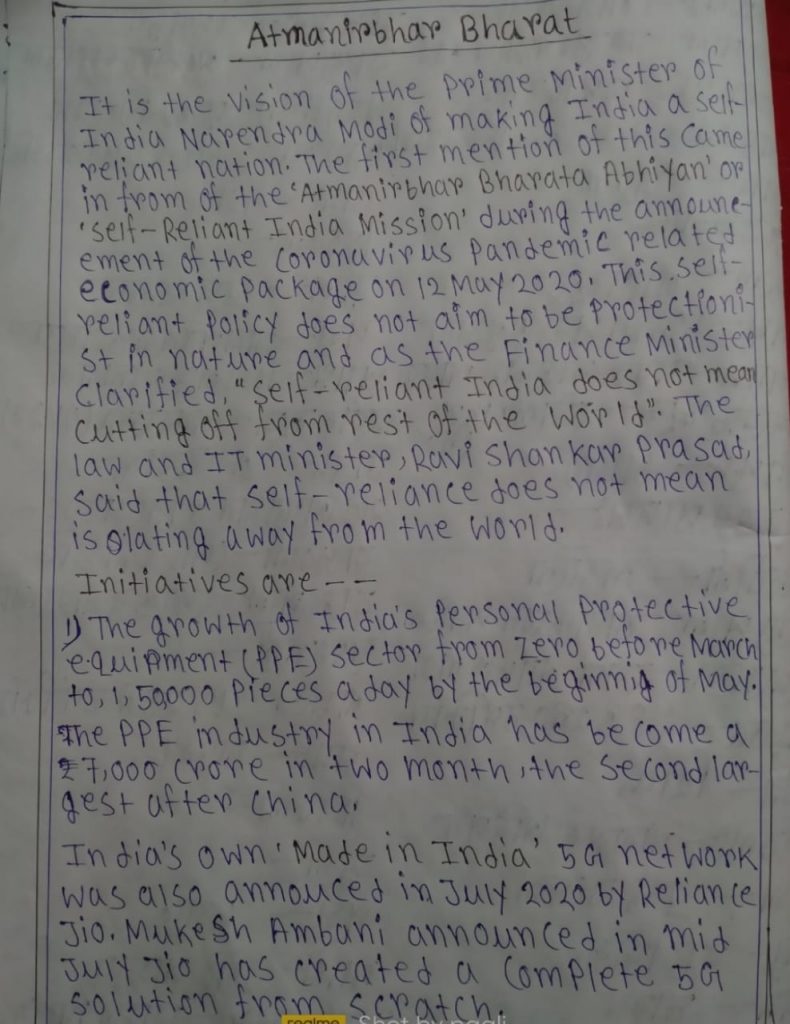 Atmanirbhar Bharat
It is the vision of the Prime Minister of
India Narendra Modi of making India a self-
reliant nation. The first mention of this came
in from of the 'Atmanirbhar Bharata Abhiyan' or
'Self-Reliant India Mission' during the announc-
ement of the Coronavirus Pandemic related
economic package on 12 May 2020. This self-
reliant policy does not aim to be protectioni-
st in nature and as the Finance Minister
clarified, "self-reliant India does not mean
cutting off from rest of the world". The
law and IT minister, Ravi Shankar Prasad,
said that self-reliance does not mean
isolating away from the world.
Initiatives are --
1) The growth of India's Personal Protective
equipment (PPE) sector from zero before March
to, 1,50,000 pieces a day by the beginnig of May.
The PPE industry in India has become a
₹7,000 crore in two month, the second lar-
gest after China.
India's own 'Made in India' 5G network
was also annouced in July 2020 by Reliance
Jio. Mukesh Ambani announced in mid
July Jio has created a complete 5G
solution from scratch.
realme Shot by pagli